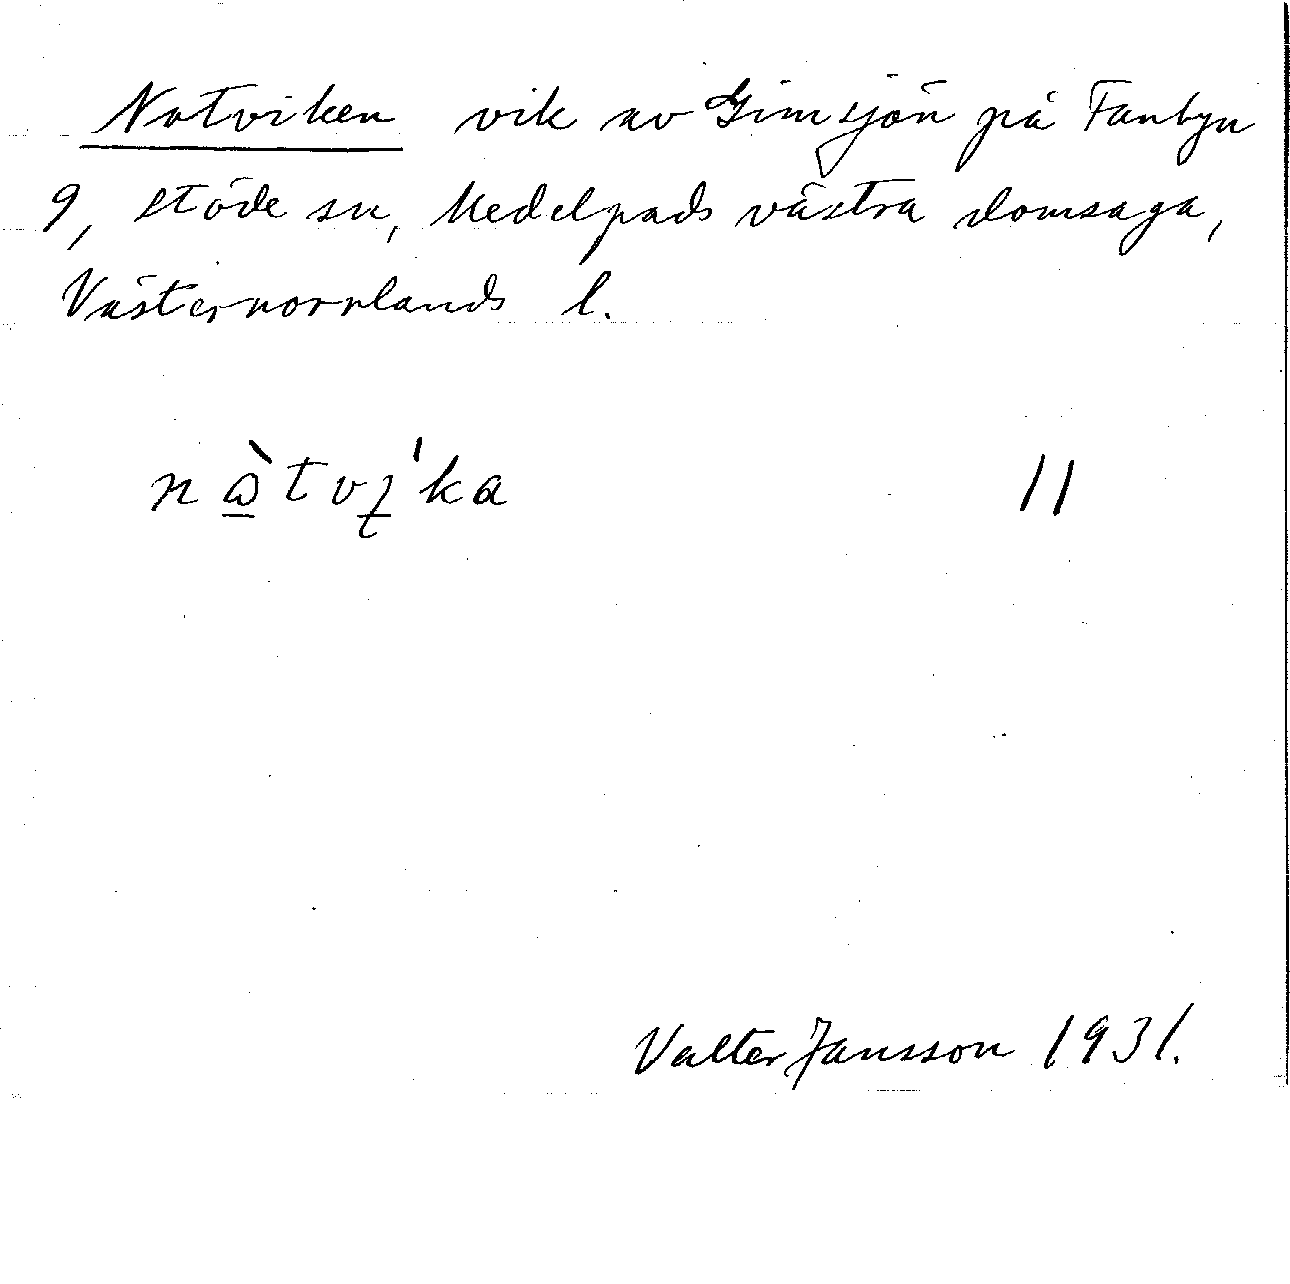 Notviken vik av Gimsjön på Fanbyn
9, Stöde sn, Medelpads västra domsaga,
Västernorrlands l.
11
Valter Jansson 1931.